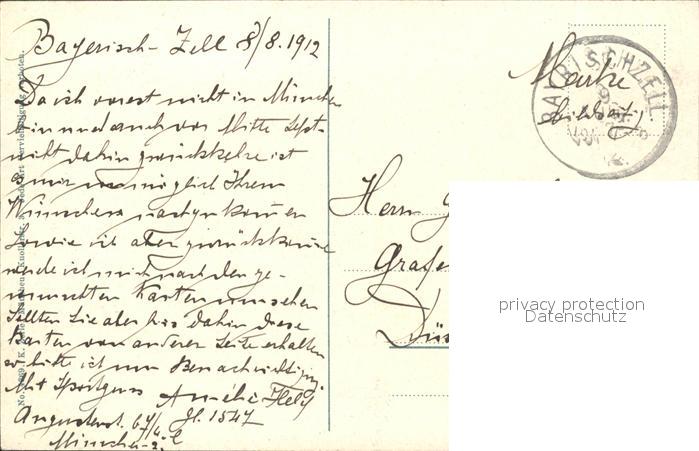 Bayerisch-Zell 8/8.1912
Da ich vorerst nicht in München
bin und auch vor Mitte Sept.
nicht dahin zurückkehre ist
es mir unmöglich Ihrem
Wunsche nachzukommen
Sowie ich aber zurückkomme
werde ich mich nach den ge-
wünschten Karten umsehen
Sollten Sie aber bis dahin diese
Karten von anderer Seite erhalten
so bitte ich um Benachrichtigung
Mit Sportgruss
Amélie
67/4
München
Marke
bildseit.
BAYRISCHZELL
Herrn
Grafe
Düs
privacy protection
Datenschutz